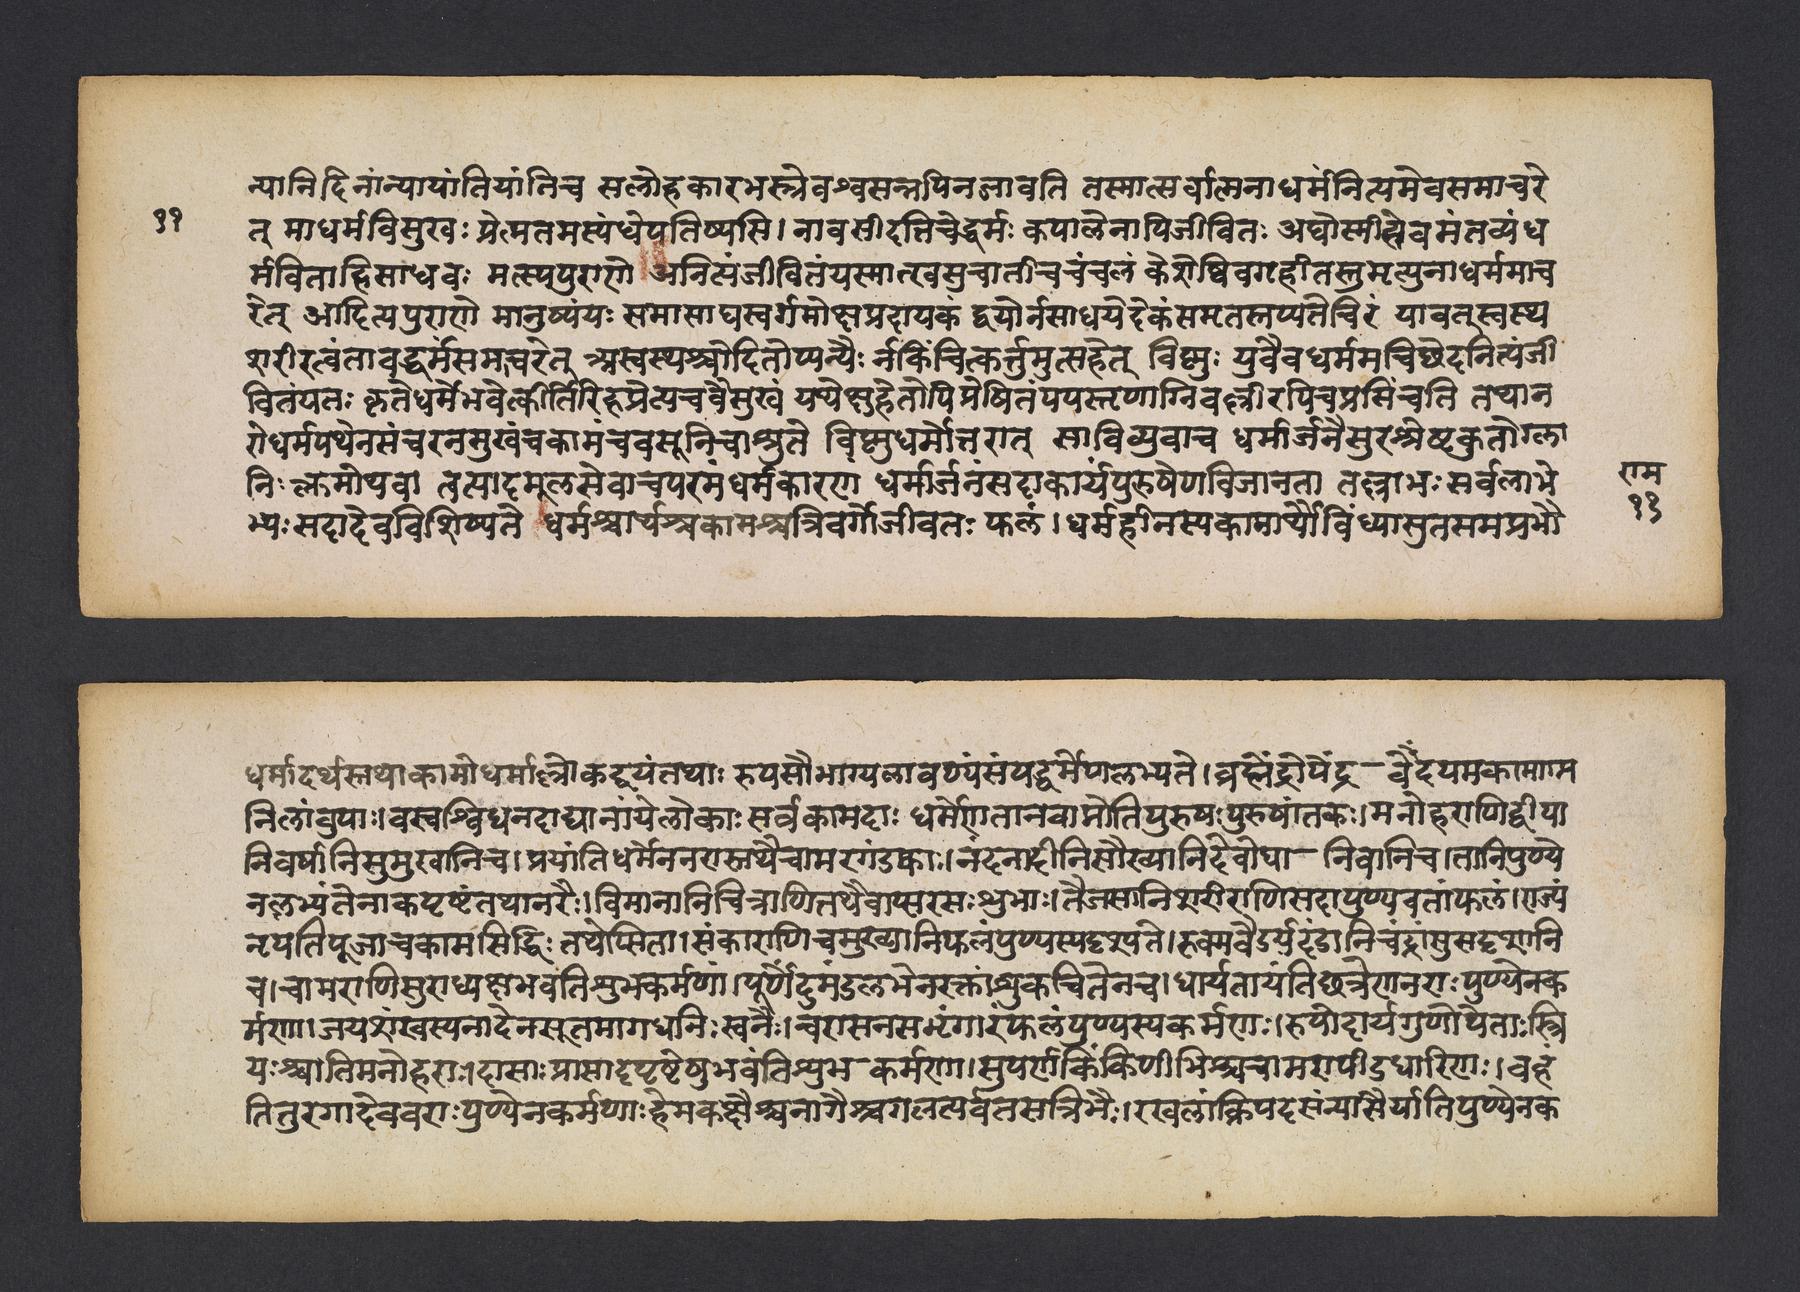 न्यानिदिनांन्यायांतियांतिच सलोहकारभस्त्रेवश्वसन्नपिनजीवति तस्मात्सर्वात्मनाधर्मंनित्यमेवसमाचरे
११
त् माधर्मविमुखः प्रेत्मतमस्यंधेपतिष्यसि। नावसीदत्तिचेद्धर्मः कपालेनापिजीवितः अघोस्मीत्येवमंतव्यंध
र्मवित्ताहिसाधवः मत्स्यपुराणे अनित्यंजीवितंयस्मात्वसुचातीवचंचलं केशेष्विवगृहीतस्तुमृत्युनाधर्ममाच
रेत् आदित्यपुराणे मानुष्यंयः समासाद्यस्वर्गमोक्षप्रदायकं द्वयोर्नसाधयेदेकंसमृतस्तप्यतेचिरं यावत्स्वस्थ
शरीरत्वंतावद्धर्मंसमाचरेत् अस्वस्थश्चोदितोप्यन्यैः र्नकिंचित्कर्त्तुमुत्सहेत् विष्णुः युवैवधर्ममन्विछेदनित्यंजी
वितंयतः कृतेधर्मेभवेत्कीर्तिरिहप्रेत्यचवैसुखं यथेक्षुहेतोपिप्रेषितंपयस्तृणानिवल्लीरपिचप्रसिंचति तथान
रोधर्मपथेनसंचरन्सुखंचकामंचवसूनिचाश्नुते विष्णुधर्मोत्तरात् सावित्र्युवाच धर्मार्जनेसुरश्रेष्टकुतोग्ला
निः क्लमोथवा त्वत्पादमूलसेवाचपरमंधर्मकारणं धर्मार्जनंसदाकार्यंपुरुषेणविजानता तल्लाभः सर्वलाभे
राम
११
भ्यः सदादेवविशिष्यते धर्मश्चार्थश्चकामश्चत्रिवर्गोजीवतः फलं। धर्महीनस्यकामार्थौवंध्यासुतसमप्रभौ
धर्मादर्थस्तथाकामोधर्माल्लोकद्वयंतथाः रुपसौभाग्यलावण्यंसंपद्धर्मेणलभ्यते। ब्रह्मेंद्रोपेंद्र
निलांवुपाः। वस्वश्विधनदाद्यानांयेलोकाः सर्वकामदाः धर्मेणतानवाप्नोतिपुरुषः पुरुषांतकः। मनोहराणिद्वीपा
निवर्षानिसुमुखानिच। प्रयांतिधर्मेननरास्तथैचामरगंडकाः। नंदनादीनिसौख्यानिदेवोद्या-निवानिच। तानिपुण्ये
नलभ्यंतेनाकपृष्टंतथानरैः। विमानानिचित्राणितथैवाप्सरसः शुभाः। तैजसानिशरीराणिसदापुण्यवतांफलं। राज्यं
नृपतिपूजाचकामसिद्धिः तथेप्सिता। संकाराणिचमुख्यानिफलंपुण्यस्यदृश्यते। रुक्मवैडुर्यदंडानिचंद्रांसुसदृशानि
च। चामराणिसुराध्यक्षभवंतिशुभकर्मणां। पूर्णेंदुमंडलाभेनरक्तांशुकचितेनच। धार्यतायंतिछत्रेणनराः पुण्येनक
र्मणा। जयशंखस्यनादेनसूतमागधनिः स्वनैः। वरासनसभृंगारंफलंपुण्यस्यकर्मणः। रुपौदार्यगुणोपेताः स्त्रि
यः श्चातिमनोहरा। दासाः प्रासादपृष्टेषुभवंतिशुभ-कर्मणा। सुपर्णकिंकिणीभिश्चचामरापीडधारिणः। वहं
तितुरगादेववराः पुण्येनकर्मणाः हेमकक्षैश्चनागैश्चगलत्पर्वतसन्निभैः। रखलांघ्रिपदसंन्यासैर्यांतिपुण्येनक